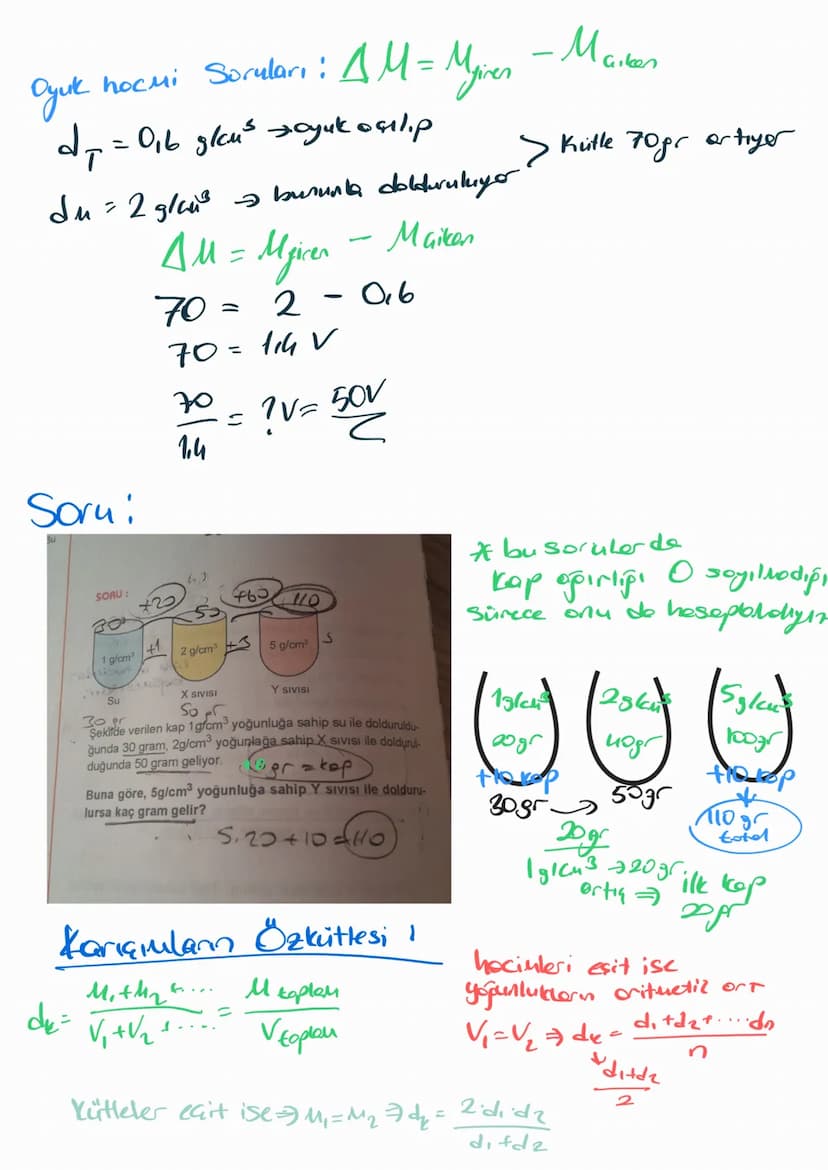 Oyuk hacmi Soruları : ΔM = Mgiren - Mçıkan
dT = 0,6 g/cm³ → oyuk açılıp
> Kütle 70gr artıyor
dM = 2 g/cm³ → bununla dolduruluyor
ΔM = Mgiren - Mçıkan
70 = 2 - 0,6
70 = 1,4 V
70/1,4 = ? V = 50V
Soru :
SORU :
+20 +60 110
30 50
1 g/cm³ +1 2 g/cm³ +3 5 g/cm³ 5
Su X SIVISI Y SIVISI
30 gr 50 gr
Şekilde verilen kap 1 g/cm³ yoğunluğa sahip su ile dolduruldu-
ğunda 30 gram, 2g/cm³ yoğunlağa sahip X sıvısı ile dolduru-
duğunda 50 gram geliyor. 10 gr = kap
Buna göre, 5g/cm³ yoğunluğa sahip Y sıvısı ile dolduru-
lursa kaç gram gelir?
5.20 + 10 = 110
* bu sorularda
kap ağırlığı 0 sayılmadığı
sürece onu da hesaplamalıyız
1g/cm³ 2g/cm³ 5g/cm³
20gr 40gr 100gr
+10 kap +10 kap
30gr → 50gr
110 gr total
20gr
1g/cm³ → 20gr artış ⇒ ilk kap
20gr
Karışımların Özkütlesi !
dk = M1+M2+.... / V1+V2+..... = M toplam / V toplam
hacimleri eşit ise
yoğunlukların aritmetik ort
V1=V2 ⇒ dk = d1+d2+....dn / n
d1+d2 / 2
Kütleler eşit ise ⇒ M1=M2 ⇒ dk = 2.d1.d2 / d1+d2